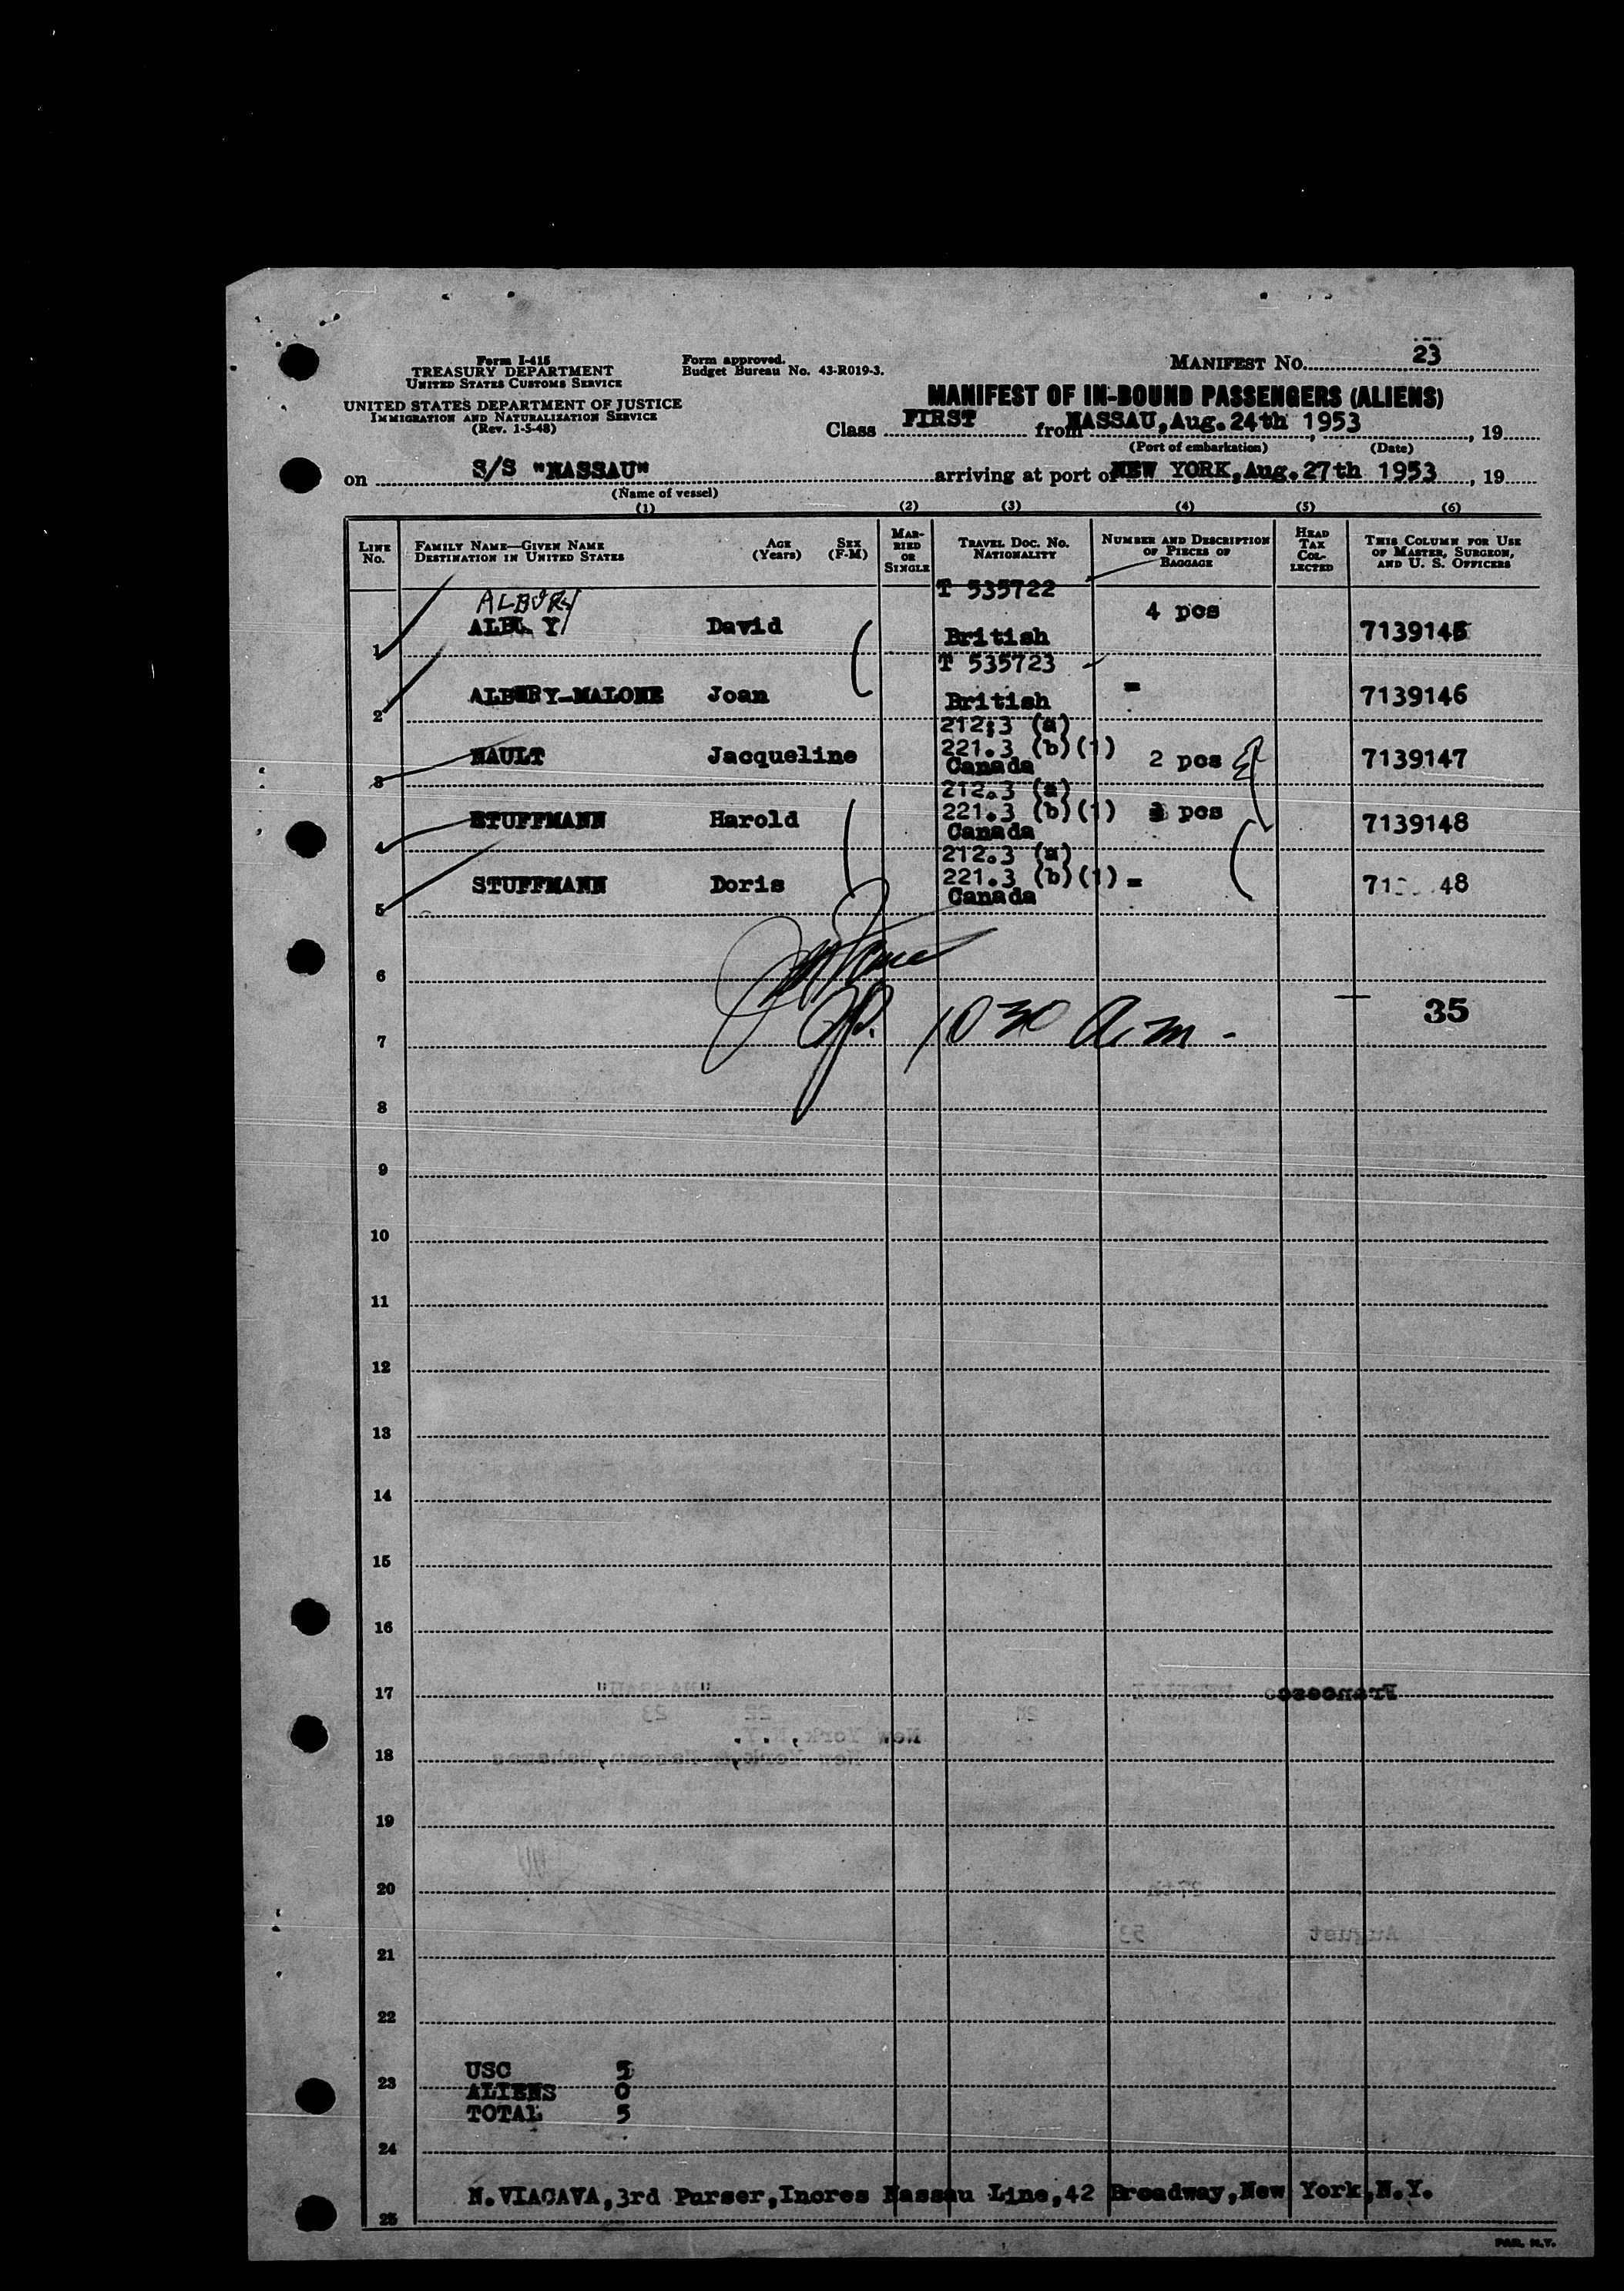 Form I-415
TREASURY DEPARTMENT
UNITED STATES CUSTOMS SERVICE
UNITED STATES DEPARTMENT OF JUSTICE
IMMIGRATION AND NATURALIZATION SERVICE
(Rev. 1-5-48)
Form approved.
Budget Bureau No. 43-R019-3.
MANIFEST No. 23
MANIFEST OF IN-BOUND PASSENGERS (ALIENS)
Class FIRST from NASSAU, Aug. 24th 1953, 19
(Port of embarkation) (Date)
on S/S "NASSAU" arriving at port of NEW YORK, Aug. 27th 1953, 19
(Name of vessel)
(1) (2) (3) (4) (5) (6)
LINE No. FAMILY NAME—GIVEN NAME DESTINATION IN UNITED STATES AGE (Years) SEX (F-M) MARRIED OR SINGLE TRAVEL DOC. NO. NATIONALITY NUMBER AND DESCRIPTION OF PIECES OF BAGGAGE HEAD TAX COLLECTED THIS COLUMN FOR USE OF MASTER, SURGEON, AND U. S. OFFICERS
T 535722
ALBURY
1 David British 4 pcs 7139145
T 535723
2 ALBURY-MALONE Joan British = 7139146
212.3 (a)
221.3 (b)(1)
3 NAULT Jacqueline Canada 2 pcs 7139147
212.3 (a)
221.3 (b)(1)
4 STUFFMANN Harold Canada 3 pcs 7139148
212.3 (a)
221.3 (b)(1)
5 STUFFMANN Doris Canada = 48
6
7 1030 a.m. - 35
8
9
10
11
12
13
14
15
16
17
18
19
20
21
22
USC 5
23 ALIENS 0
TOTAL 5
24
N. VIACAVA, 3rd Purser, Incres Nassau Line, 42 Broadway, New York, N.Y.
25
PAR. N.Y.